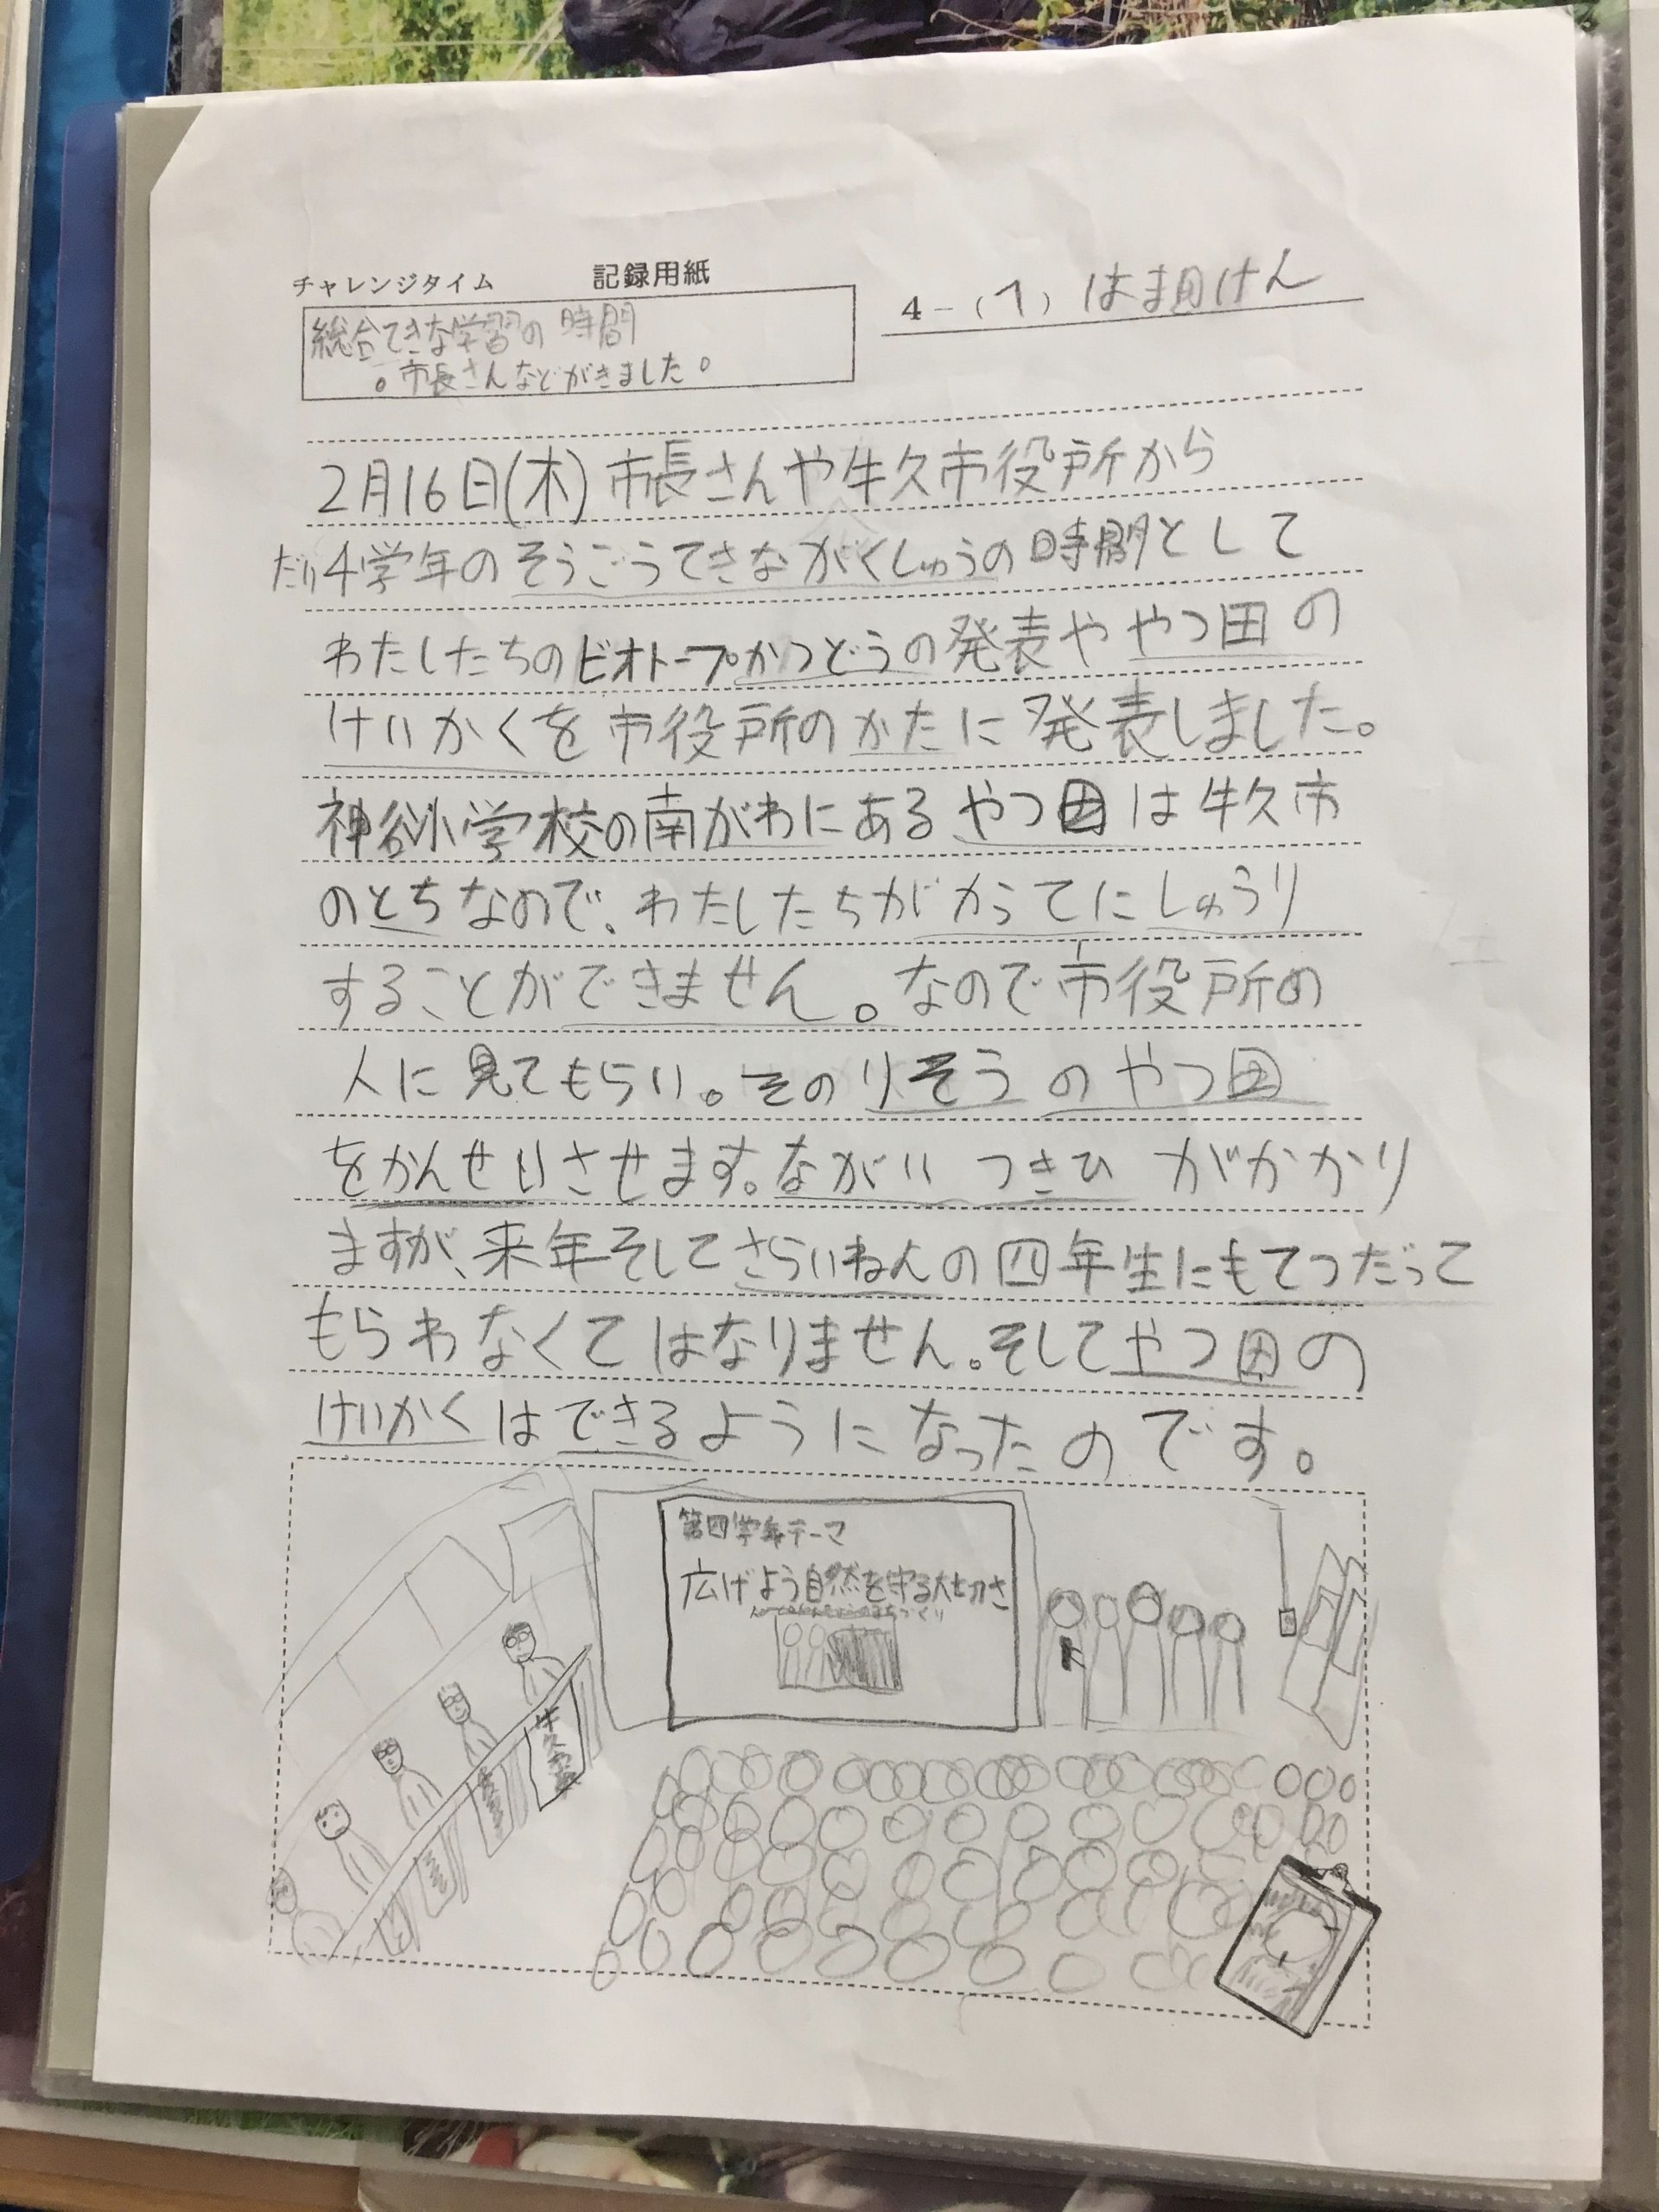 チャレンジタイム　記録用紙
4-(1) はま田けん
総合てきな学習の時間
。市長さんなどがきました。
2月16日(木)市長さんや牛久市役所から
だい4学年のそうごうてきながくしゅうの時間として
わたしたちのビオトープかつどうの発表ややつ田の
けいかくを市役所のかたに発表しました。
神谷小学校の南がわにあるやつ田は牛久市
のとちなので、わたしたちがかってにしゅうり
することができません。なので市役所の
人に見てもらい。そのりそうのやつ田
をかんせいさせます。ながい つきひ がかかり
ますが、来年そしてさらいねんの四年生にもてつだって
もらわなくてはなりません。そしてやつ田の
けいかくはできるようになったのです。
第四学年テーマ
広げよう自然を守る大切さ